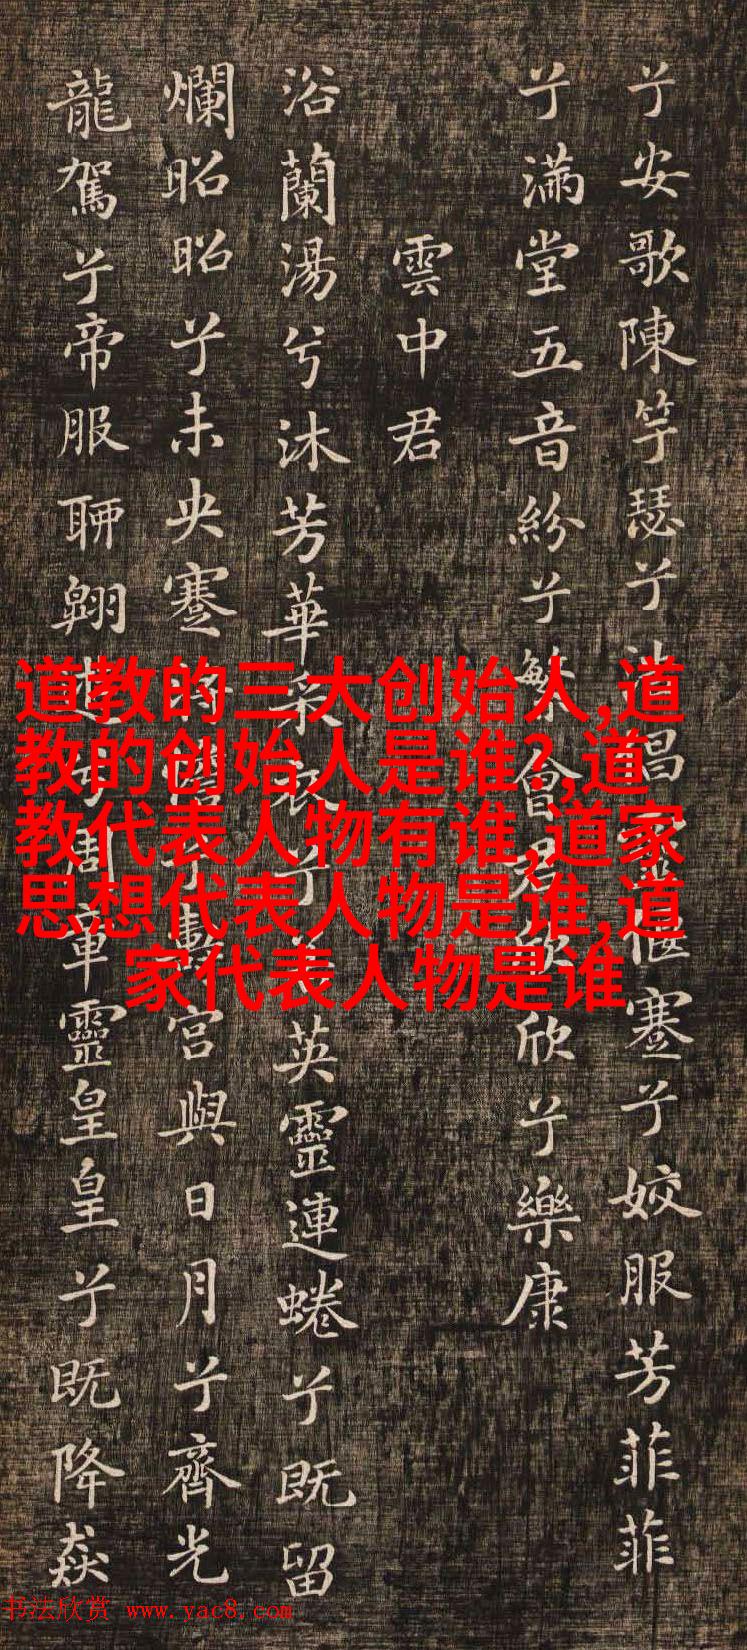 兮安歌陳竽瑟兮倡偃蹇兮姣服芳菲菲
兮滿堂五音紛兮繁會君欣欣兮樂康
雲中君
浴蘭湯兮沐芳華采衣兮若英靈連蜷兮既留
爛昭昭兮未央蹇將憺兮壽宮與日月兮齊光
龍駕兮帝服聊翱遊兮周章靈皇皇兮既降猋
道教的三大创始人,道
教的创始人是谁?,道
教代表人物有谁,道家
思想代表人物是谁,道
家代表人物是谁
书法欣赏 www.yac8.com